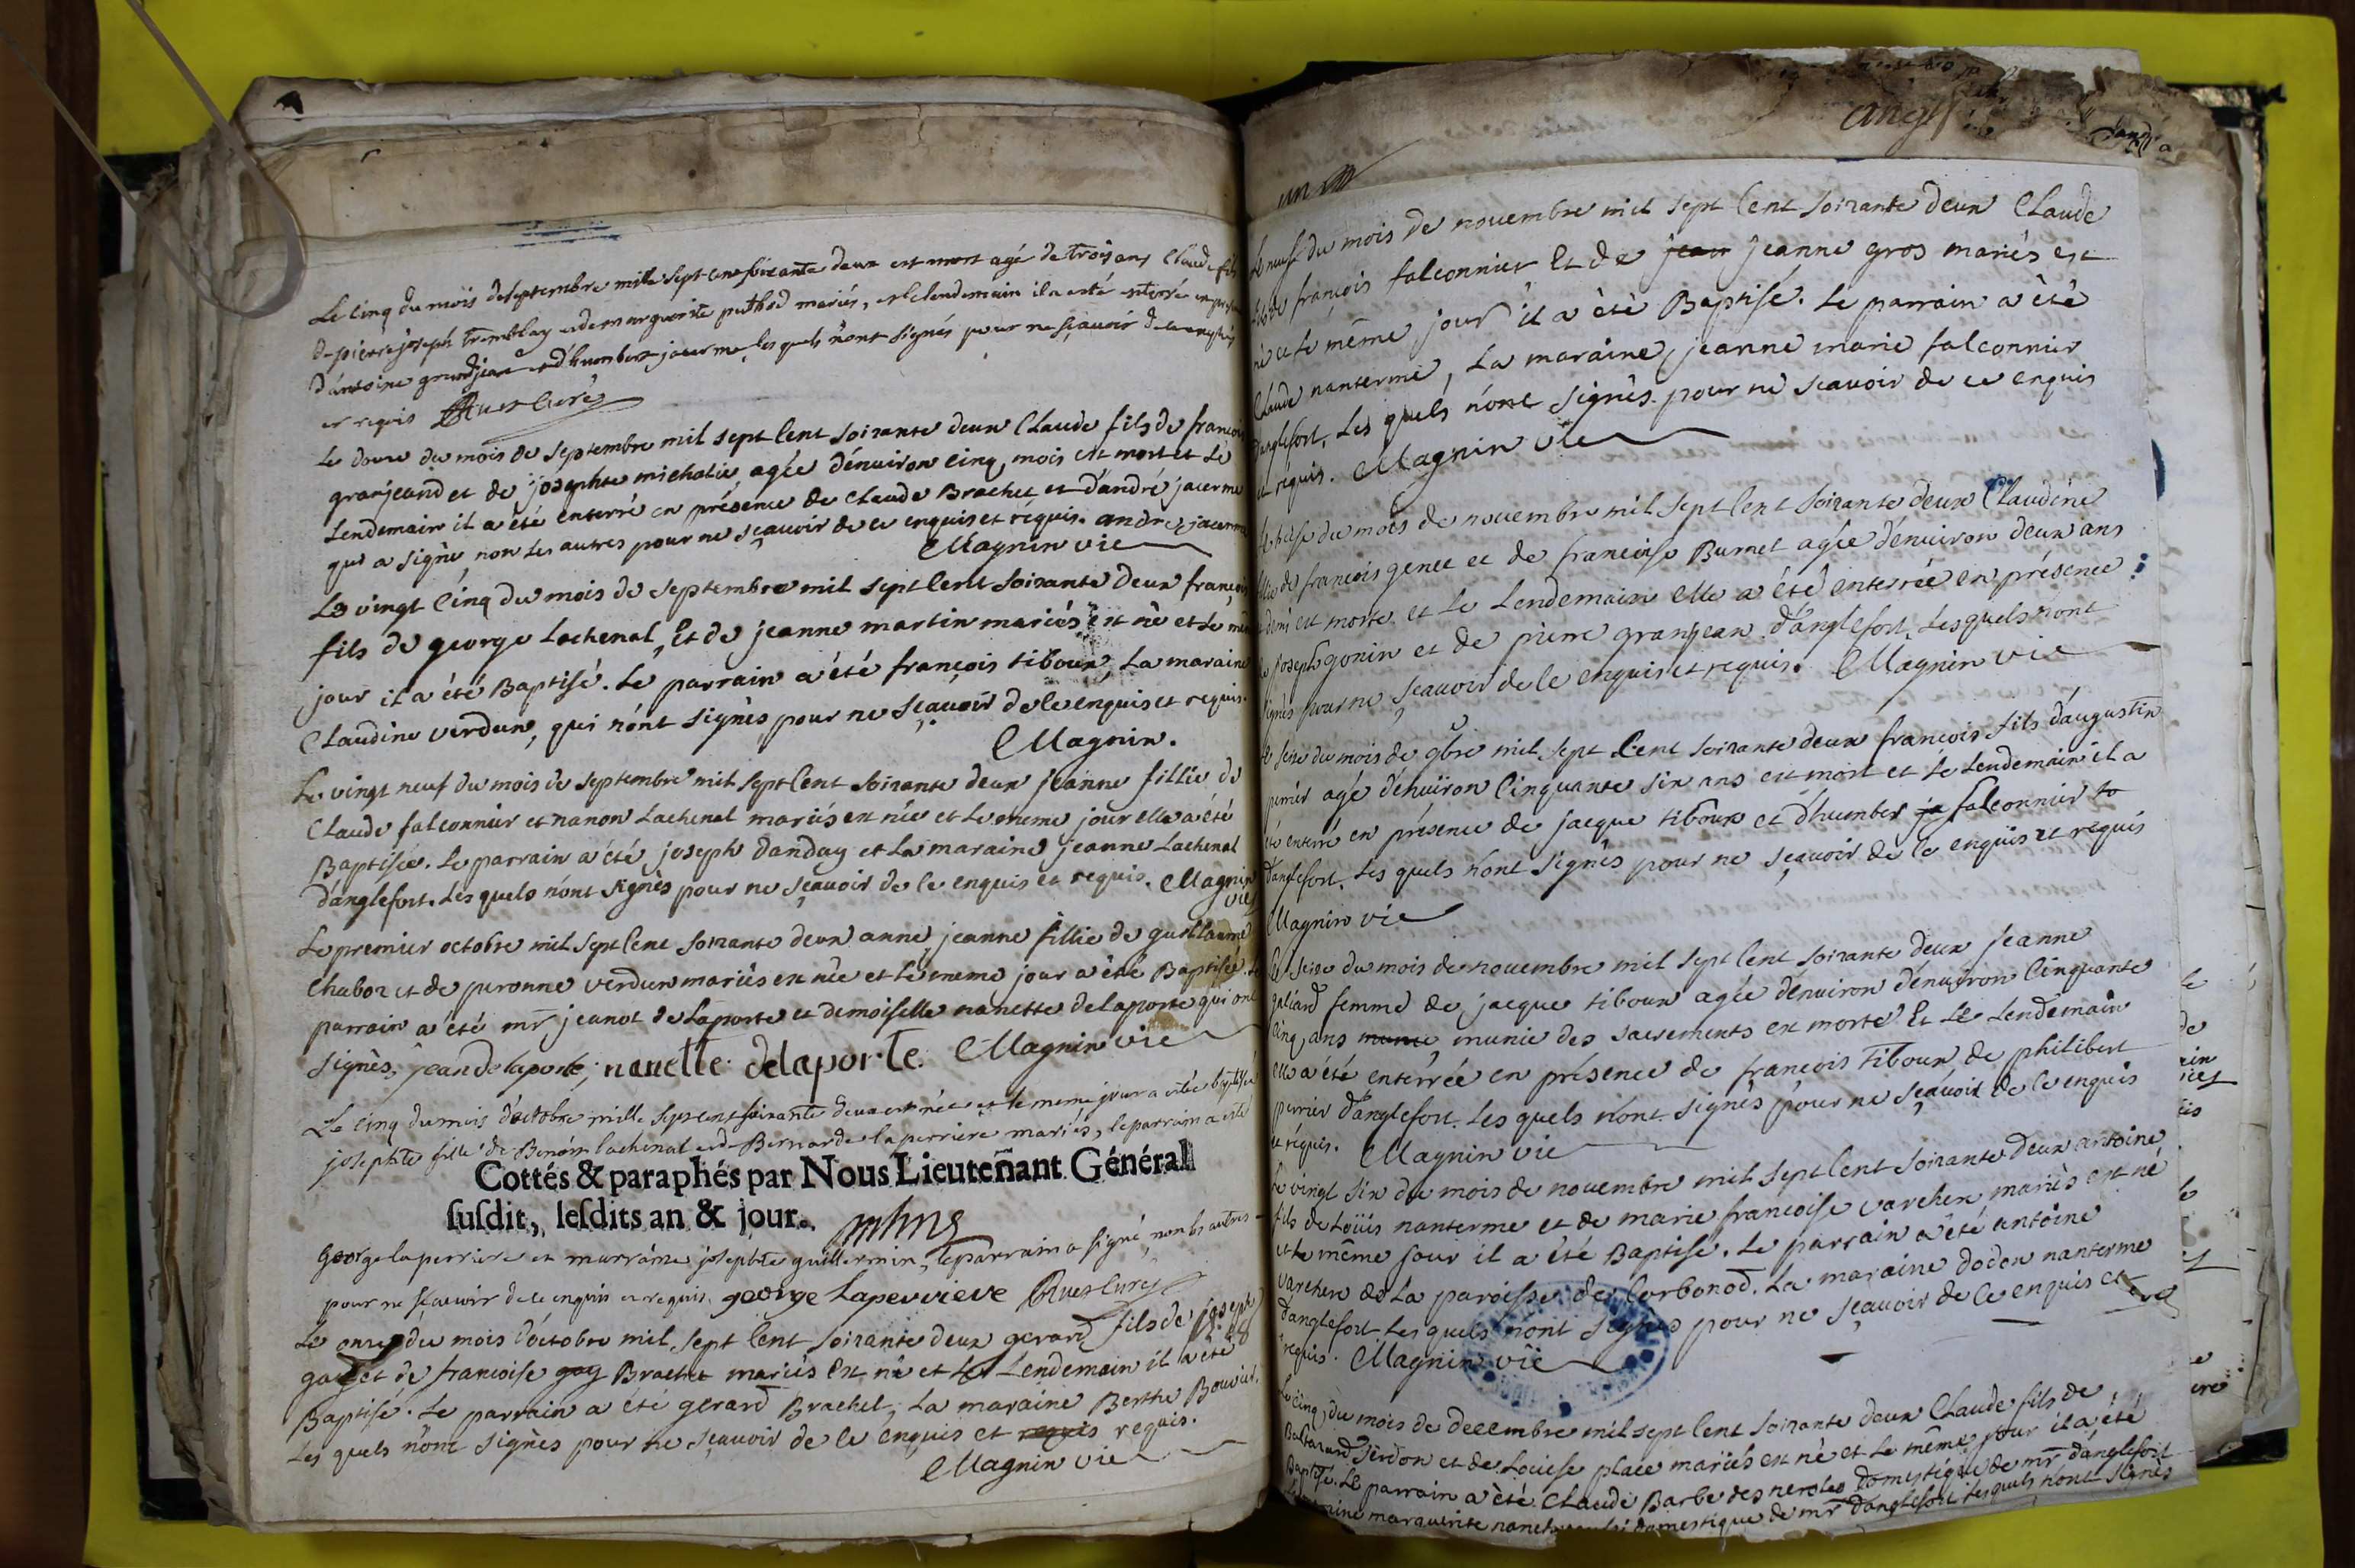 Le cinq du mois de septembre mille sept cent soixante deux est mort agé de trois ans Claude fils
de pierre joseph tremblay et de marguerite puthod mariés, et le lendemain il a esté enterré en presence
d'antoine grandjean et d'humbert jacerme les quels n'ont signés pour ne sçavoir de ce enquis
et requis
Le douze du mois de septembre mil sept cent soixante deux Claude fils de francois
granjeand et de josephte michalie, agée d'énuiron cinq mois est mort et le
Lendemain il a été enterré en présence de claude Brachet et d'andré jacerme
qui a signé, non les autres pour ne sçauoir de ce enquis et réquis. andre jacerme
Magnin vic
Le vingt cinq du mois de septembre mil sept cent soixante deux françois
fils de george Lachenal, Et de jeanne martin mariés est né et le même
jour il a été Baptisé. Le parrain a été françois tiboux, La maraine
Claudine verdun, qui n'ont signés pour ne sçauoir de ce enquis et requis.
Magnin.
Le vingt neuf du mois de septembre mil sept cent soixante deux jeanne fillie de
Claude falconnier et nanon Lachenal mariés est née et le meme jour elle a été
Baptisée. Le parrain a été joseph danday et La maraine jeanne Lachenal
d'anglefort. Les quels n'ont signés pour ne sçauoir de ce enquis et requis. Magnin
vic
Le premier octobre mil sept cent soixante deux anne jeanne fillie de guillaume
Chaboz et de peronne verdun mariés est née et le meme jour a été Baptisée. Le
parrain a été mr jeanot de Laporte et demoiselle nanette delaporte qui ont
signés, jean de laporte; nanette delaporte. Magnin vic
Le cinq du mois d'octobre mille sept cent soixante deux est née et le meme jour a esté baptisée
josephte fille de Benoit lachenal et de Bernarde laperriere mariés, le parrain a esté
Cottés & paraphés par Nous Lieutenant Général
susdit, lesdits an & jour.
george laperriere et marraine josephte guillermin, le parrain a signé, non les autres
pour ne sçauoir de ce enquis et requis. george Laperriere
Le onze du mois d'octobre mil sept cent soixante deux gerard fils de joseph
gay et de francoise gay Brachet mariés est né et le Lendemain il a été
Baptisé. Le parrain a été gerard Brachet, La maraine Berthe Bouvier.
Les quels n'ont signés pour ne sçauoir de ce enquis et requis requis.
Magnin vic
Le neuf du mois de nouembre mil sept cent soixante deux Claude
fils de françois falconnier Et de jean jeanne gros mariés est
né et le même jour il a été Baptisé. Le parrain a été
Claude nanterme, La maraine, jeanne marie falconnier
d'anglefort, Les quels n'ont signés pour ne scauoir de ce enquis
et réquis. Magnin vic
du mois de nouembre mil sept cent soixante deux Claudine
fillie de francois genet et de francoise Burnet agée d'énuiron deux ans
et demi est morte et le Lendemain elle a été enterrée en présence
de joseph gonin et de pierre granjean d'anglefort. Les quels n'ont
signés pour ne sçauoir de ce enquis et requis. Magnin vic
Le seize du mois de 9bre mil sept Cent soixante deux francois fils d'augustin
perrier agé d'énuiron Cinquante six ans est mort et le Lendemain il a
été enterré en présence de jacque tiboux et d'humber ja falconnier to
d'anglefort. Les quels n'ont signés pour ne sçauoir de ce enquis et requis
Magnin vic
Le seize du mois de nouembre mil sept cent soixante deux jeanne
galiard femme de jacque tiboux agée d'énuiron d'énuiron Cinquante
cinq ans munie, munie des sacrements est morte Et Le Lendemain
elle a été enterrée en présence de francois Tiboux de philibert
perrier d'anglefort. Les quels n'ont signés pour ne sçauoir de ce enquis
et réquis. Magnin vic
Le vingt six du mois de nouembre mil sept cent soixante deux antoine
fils de Loüis nanterme et de marie francoise varehen mariés est né
et le même jour il a été Baptisé. Le parrain a été antoine
varehen de La paroisse de Corbonod. La maraine dodon nanterme
d'anglefort Les quels n'ont signés pour ne sçauoir de ce enquis et
requis. Magnin vic
Le cinq du mois de decembre mil sept cent soixante deux Claude fils de
Baltazard Serdon et de Louise place mariés est né et Le même jour il a été
Baptisé. Le parrain a été Claude Barbe des neroles domestique de mr d'anglefort
maraine marguerite domestique de mr d'anglefort Les quels n'ont signés